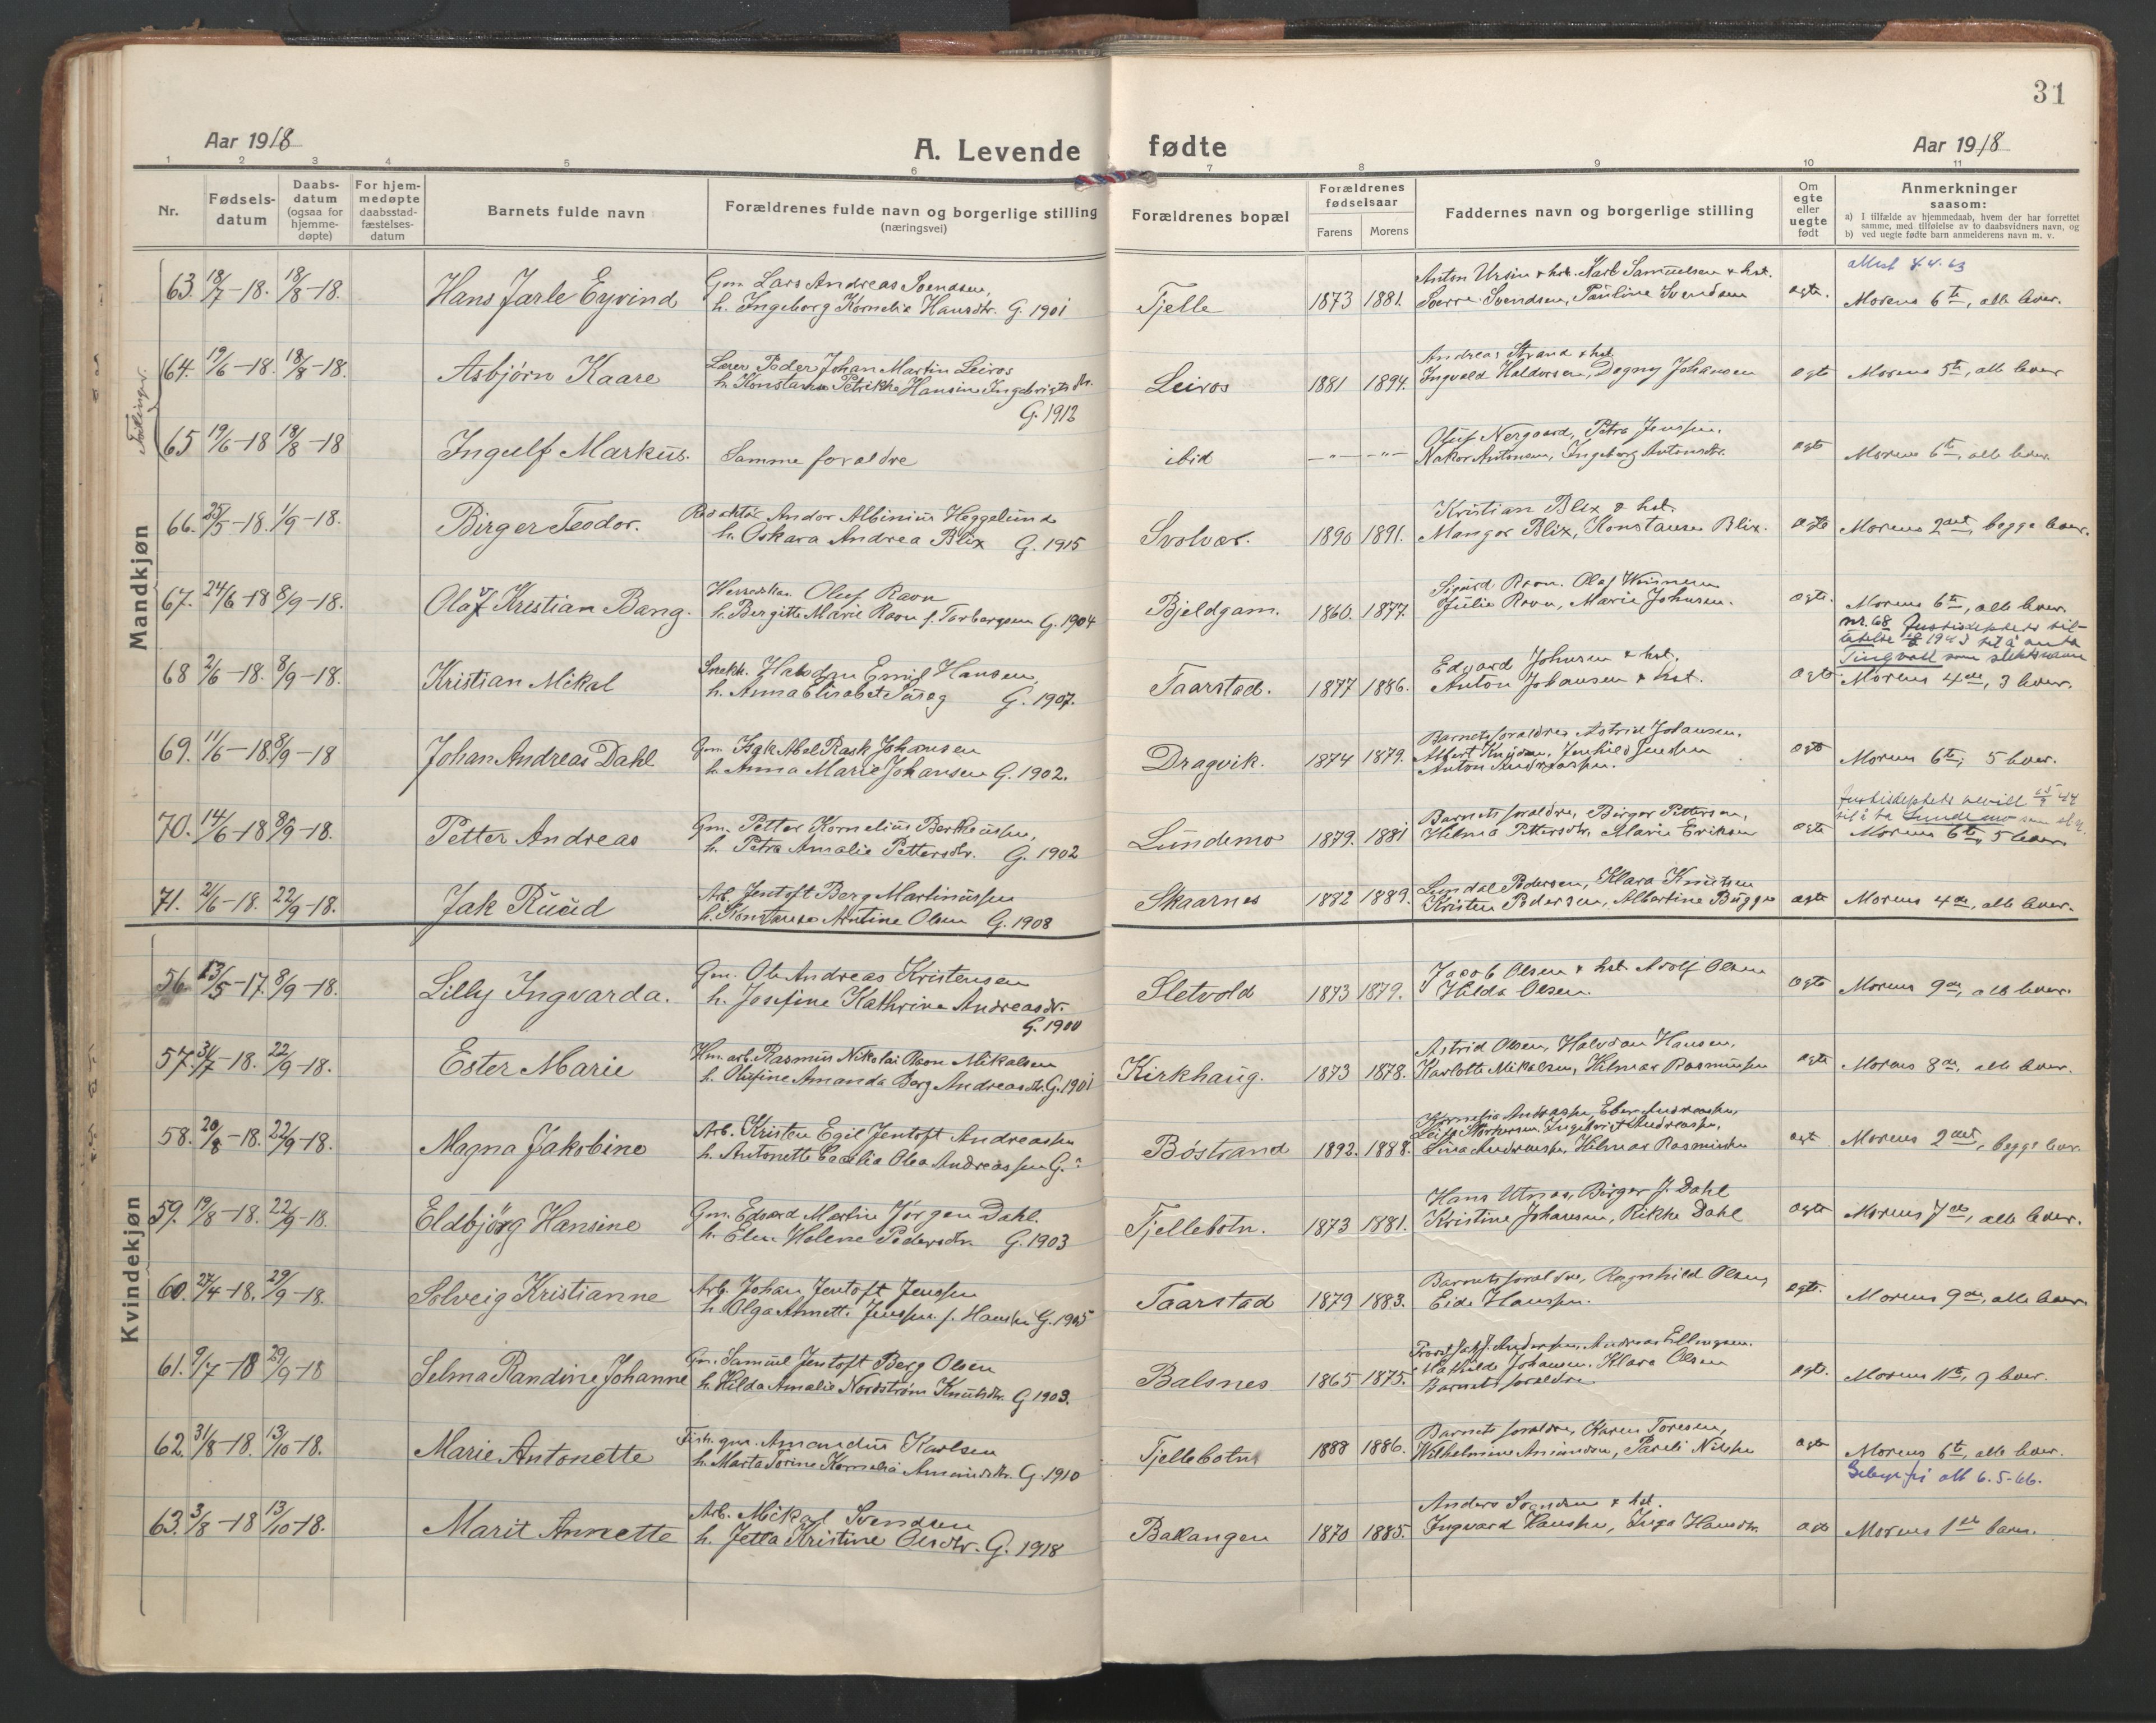 31
Aar 1918
A. Levende fødte
Aar 1918
1 2 3 4 5 6 7 8 9 10 11
Nr.
Fødsels-
datum
Daabs-
datum
(ogsaa for
hjemme-
døpte)
For hjem-
medøpte
daabsstad-
fæstelses-
datum
Barnets fulde navn
Forældrenes fulde navn og borgerlige stilling
(næringsvei)
Forældrenes bopæl
Forældrenes
fødselsaar
Farens Morens
Faddernes navn og borgerlige stilling
Om
egte
eller
uegte
født
Anmerkninger
saasom:
a) I tilfælde av hjemmedaab, hvem der har forrettet
samme, med tilføielse av to daabsvidners navn, og
b) ved uegte fødte barn anmelderens navn m. v.
Mandkjøn
63. 18/7-18. 18/8-18. Hans Jarle Eyvind
Gm. Lars Andreas Svendsen,
h. Ingeborg Kornelia Hansdtr. G. 1901
Tjelle 1873 1881.
Anton Ursin & hst. Karl Samuelsen & hst.
Sverre Svendsen, Pauline Svendsen
egte.
attest 4.4.63
Morens 6te, alle lever.
Tvillinger.
64. 19/6-18. 18/8-18. Asbjørn Kaare
Lærer Peder Johan Martin Leiros
h. Konstanse Petrikke Hansine Ingebrigtsdtr.
G. 1912
Leiros 1881 1894.
Andreas Strand & hst.
Ingvald Haldorsen, Dagny Johansen
egte Morens 5te, alle lever
65 19/6-18 18/8-18 Ingulf Markus.
Samme forældre
ibid -"- -"-
Oluf Nergaard, Petra Jenssen.
Hakor Antonsen, Ingeborg Antonsdtr.
egte Morens 6te, alle lever.
66. 25/5-18. 1/9-18. Birger Teodor.
Redaktør Andor Albinius Heggelund
h. Oskara Andrea Blix G. 1915
Svolvær. 1890 1891.
Kristian Blix & hst.
Mangor Blix, Konstanse Blix.
egte Morens 2det, begge lever.
67. 24/6-18 8/9-18. Olaf Kristian Bang.
Herredskas. Oluf Ravn
h. Bergitte Marie Ravn f. Torbergsen G. 1904
Bjeldgam. 1860. 1877.
Sigurd Ravn. Olaf
Julie Ravn, Marie Johnsen.
egte. Morens 6te, alle lever.
nr. 68 Justisdeptets til-
latelse 1943 til å anta
Tingvoll som slektsnavn
68 2/6-18. 8/9-18. Kristian Mikal
Snekk. Halvdan Emil Hansen,
h. Anna Elisabet G. 1907.
Taarstad. 1877 1886.
Edvard Johnsen & hst.
Anton Johansen & hst.
egte Morens 4de, 3 lever.
69. 11/6-18. 8/9-18 Johan Andreas Dahl
Gm. Isak Abel Rask Johansen
h. Anna Marie Johansen G. 1902.
Dragvik. 1874 1879.
Barnets forældre, Astrid Johansen,
Albert Knudsen, Jenhild Jenssen
Anton Andreassen.
egte Morens 6te, 5 lever.
70. 14/6-18 8/9-18. Petter Andreas
Gm. Petter Kornelius Bertheussen,
h. Petra Amalie Pettersdtr. G. 1902
Lundemo 1879. 1881
Barnets forældre, Birger Pettersen,
Hilma Pettersdtr. Marie Eriksen
egte
Justisdeptets bevill
til å ta Lundemo som
Morens 6te, 5 lever.
71. 2/6-18. 22/9-18. Jak Ruud
Arb. Jentoft Berg Martinussen
h. Konstanse Arntine Olsen G. 1908
Skaarnes 1882 1889.
Lundal Pedersen, Klara Knutsen
Kristen Pedersen, Albertine Bugge
egte Morens 4de, alle lever.
Kvindekjøn
56. 13/5-17. 8/9-18. Lilly Ingvarda.
Gm. Ole Andreas Kristensen
h. Josefine Kathrine Andreasdtr.
G. 1900
Sletvold 1873 1879.
Jacob Olsen & hst. Adolf Olsen
Hilda Olsen.
egte Morens 9de, alle lever.
57. 31/7-18. 22/9-18. Ester Marie
Hm. arb. Rasmus Nikolai Mikalsen
h. Olufine Amanda Berg Andreasdtr. G. 1901
Kirkhaug. 1873 1878.
Astrid Olsen, Halvdan Hansen,
Karlotte Mikalsen, Hilmar Rasmussen
egte Morens 8de, alle lever.
58. 20/8-18. 22/9-18. Magna Jakobine
Arb. Kristen Egil Jentoft Andreassen
h. Antonette Cecilia Olea Andreassen G.
Bøstrand 1892. 1888.
Kornelia Andreassen, Eben Andreassen,
Leif Storkersen, Ingebrigt Andreassen,
Lina Andreassen, Hilmar Rasmussen
egt Morens 2det, begge lever.
59. 19/8-18. 22/9-18. Eldbjörg Hansine
Gm. Edvard Martin Jørgen Dahl.
h. Elen Helene Pedersdtr. G. 1903
Tjellebotn. 1873 1881.
Hans Utnes, Birger J. Dahl
Kristine Johansen, Rikke Dahl
egte Morens 7de, alle lever.
60. 27/4-18. 29/9-18. Solveig Kristianne
Arb. Johan Jentoft Jenssen
h. Olga Annette Jenssen f. Hansen G. 1905
Taarstad 1879 1883.
Barnets forældre, Ragnhild Olsen,
Eide Hanssen.
egte. Morens 9de, alle lever.
61. 9/7-18 29/9-18 Selma Randine Johanne
Gm. Samuel Jentoft Berg Olsen
h. Hilda Amalie Nordstrøm Knutsdtr. G 1903.
Balsnes 1865 1875.
Andreas Ellingsen.
Mathilde Johansen. Klara Olsen
Barnets forældre
egte. Morens 11te, 9 lever.
62. 31/8-18. 13/10-18. Marie Antonette
Fisk. gm. Amandus Karlsen
h. Marta Torine Kornelia Amundsdtr. G. 1910
Tjellebotn 1888 1886.
Barnets forældre, Karen Toresen,
Wilhelmine Amundsen, Pareli Nilsen
egte Morens 6te, alle lever.
att 6.5-66.
63. 3/8-18 13/10-18. Marit Annette
Arb. Mikael Svendsen
h. Jetta Kristine Olsdtr. G. 1918
Bakangen 1870 1885.
Anders Svendsen & hst.
Ingvard Hanssen, Inga Hansdtr.
egte Morens 1ste barn.